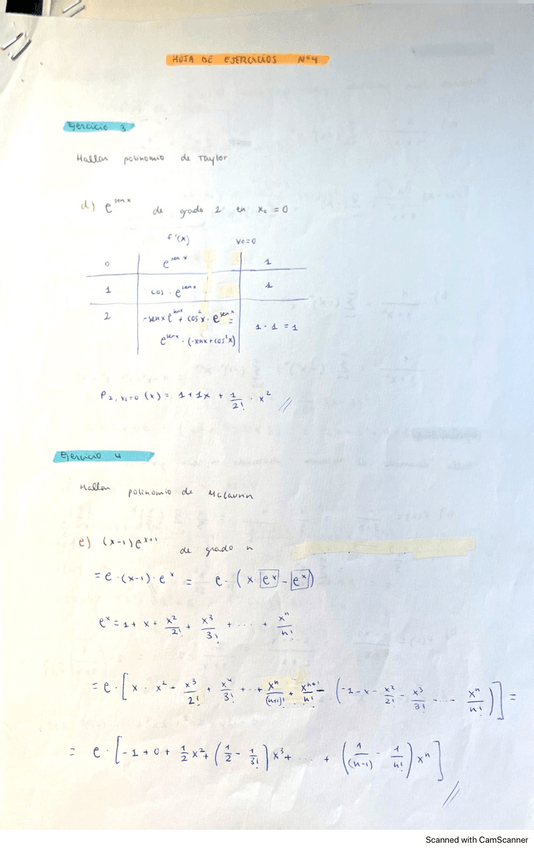 HOJA DE EJERCICIOS Nº4
Ejercicio 3
Hallar polinomio de Taylor
d) e^{sen x} de grado 2 en x₀ = 0
f^n(x) x₀=0
0 e^{sen x} 1
1 cos · e^{sen x} 1
2 -sen x e^{sen x} + cos²x · e^{sen x} =
e^{sen x} · (-sen x + cos²x) 1 · 1 = 1
P₂, x₀=0 (x) = 1 + 1x + 1/2! · x² //
Ejercicio 4
Hallar polinomio de McLaurin
e) (x-1) e^{x+1} de grado n
= e · (x-1) · e^x = e · (x · e^x - e^x)
e^x = 1 + x + x²/2! + x³/3! + ... + x^n/n!
= e · [x + x² + x³/2! + x⁴/3! + ... + x^n/(n-1)! + x^{n+1}/n! - (-1 - x - x²/2! - x³/3! ... - x^n/n!)] =
= e · [-1 + 0 + 1/2 x² + (1/2 - 1/3!) x³ + ... + (1/(n-1) - 1/n!) x^n] //
Scanned with CamScanner